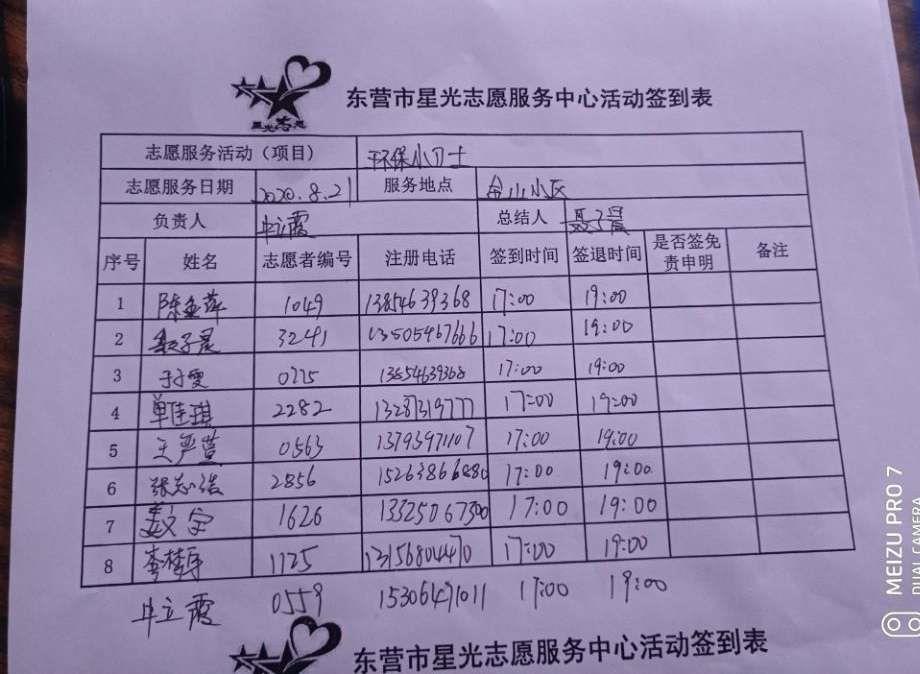 星光志愿
东营市星光志愿服务中心活动签到表
志愿服务活动（项目） 环保小卫士
志愿服务日期 2020.8.21 服务地点 金山小区
负责人 牛立霞 总结人 聂子晨
序号 姓名 志愿者编号 注册电话 签到时间 签退时间 是否签免责申明 备注
1 陈孟萍 1049 13854639368 17:00 19:00
2 聂子晨 3241 13505467666 17:00 19:00
3 于小雯 0775 13854639368 17:00 19:00
4 单佳琪 2282 13287319777 17:00 19:00
5 王严萱 0563 13793971107 17:00 19:00
6 张志浩 2856 15263866480 17:00 19:00
7 1626 13325067300 17:00 19:00
8 1725 13156804470 17:00 19:00
牛立霞 0559 15306471011 17:00 19:00
东营市星光志愿服务中心活动签到表
MEIZU PRO 7
DUAL CAMERA